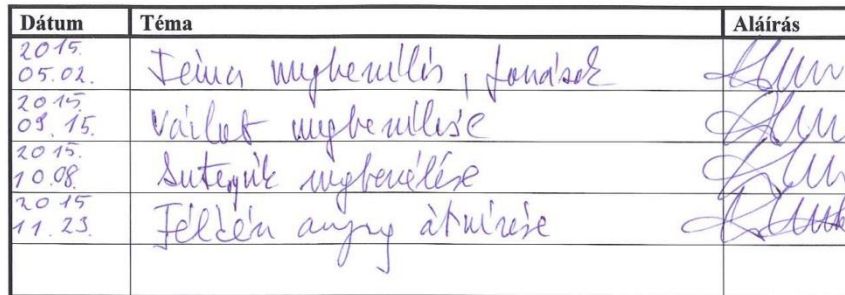 Dátum Téma Aláírás
2015.
05.02. Téma megbeszélés, források
2015.
09.15. Vázlat megbeszélése
2015.
10.08. megbeszélése
2015
11.23. anyag átnézése